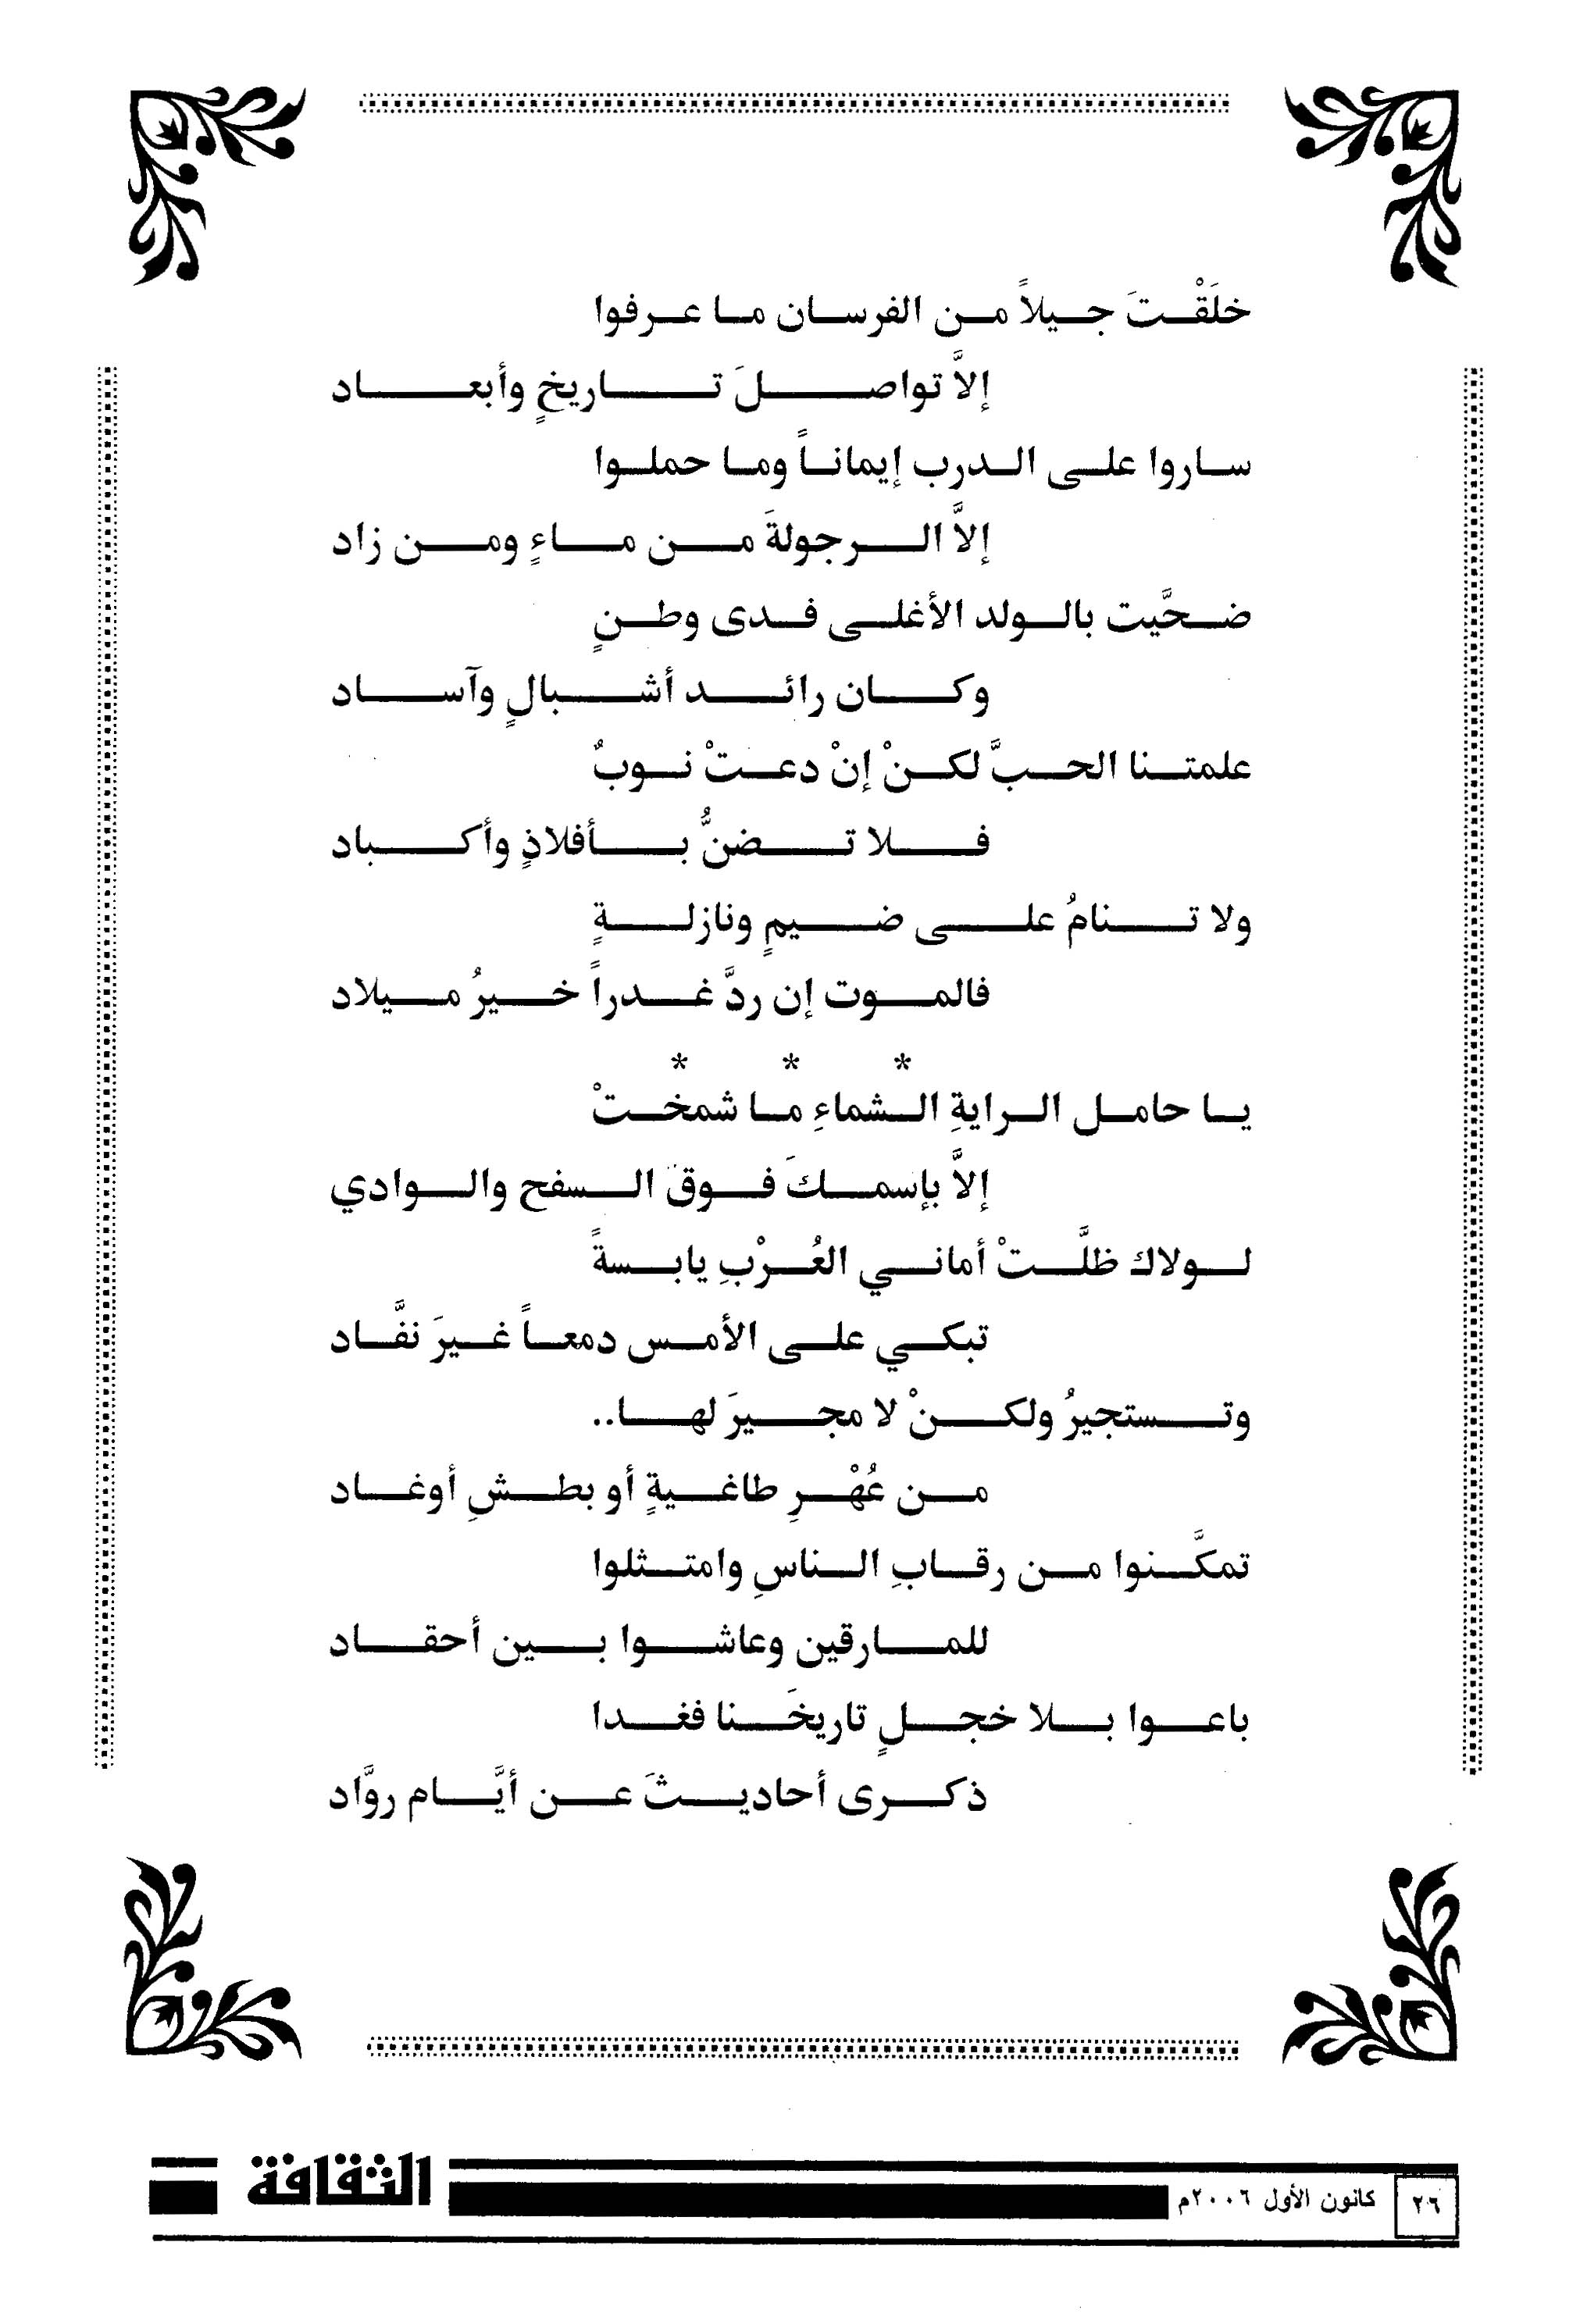 خلَقْتَ جيلاً من الفرسان ما عرفوا
إلاَّ تواصلَ تاريخٍ وأبعاد
ساروا على الدرب إيماناً وما حملوا
إلاَّ الرجولةَ من ماءٍ ومن زاد
ضحَّيت بالولد الأغلى فدى وطنٍ
وكان رائد أشبالٍ وآساد
علمتنا الحبَّ لكنْ إنْ دعتْ نوبٌ
فلا تضنُّ بأفلاذٍ وأكباد
ولا تنامُ على ضيمٍ ونازلةٍ
فالموت إن ردَّ غدراً خيرُ ميلاد
* * *
يا حامل الرايةِ الشماءِ ما شمختْ
إلاَّ بإسمكَ فوقَ السفح والوادي
لولاك ظلَّتْ أماني العُرْبِ يابسةً
تبكي على الأمس دمعاً غيرَ نفَّاد
وتستجيرُ ولكنْ لا مجيرَ لها..
من عُهْرِ طاغيةٍ أو بطشِ أوغاد
تمكَّنوا من رقابِ الناسِ وامتثلوا
للمارقين وعاشوا بين أحقاد
باعوا بلا خجلٍ تاريخَنا فغدا
ذكرى أحاديثَ عن أيَّام روَّاد
٢٦ كانون الأول ٢٠٠٦م الثقافة